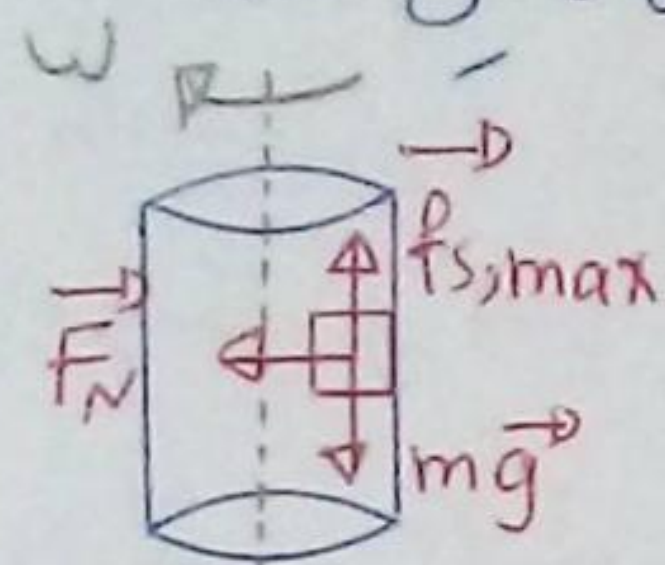 ω
fs,max
F_N
mg